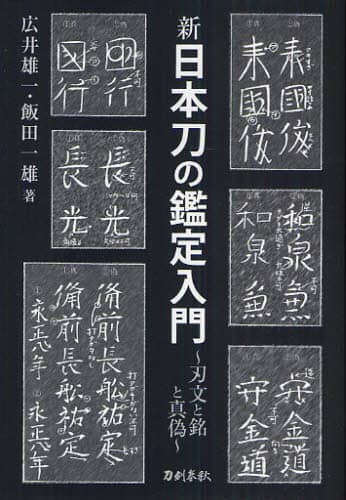 来國俊
来國俊
和泉
和泉
守金道
守金道
新
日本刀の鑑定入門
~刃文と銘
と真偽~
刀剣春秋
國行
國行
長光
長光
備前長船祐定
備前長船祐定
①永正八年
②永正八年
広井雄一・飯田一雄 著